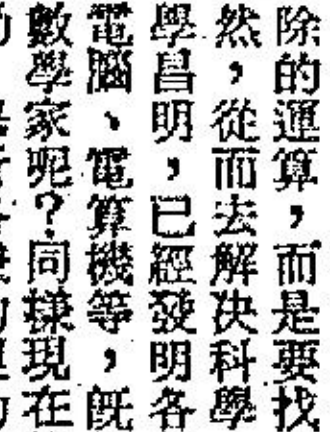 除的運算，而是要找
然，從而去解决科學
學昌明，已經發明各
電腦、電算機等，既
數學家呢？同樣現在